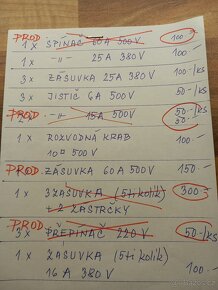 PROD
1 x SPÍNAČ 60 A 500 V 100.-
1 x -"- 25 A 380 V 100.-
3 x ZÁSUVKA 25 A 380 V 100.-/KS
3 x JISTIČ 6 A 500 V 50.-/KS
PROD -"- 15 A 500 V 50.-
1 x ROZVODNÁ KRAB 100.-
10 □ 500 V
PROD ZÁSUVKA 60 A 500 V 150.-
1 x 3ZÁSUVKA (5ti kolík) 300.-
+ 2 ZÁSTRČKY
PROD
3 x PŘEPÍNAČ 220 V 50.-/KS
1 x ZÁSUVKA (5ti kolík)
16 A 380 V 100.-